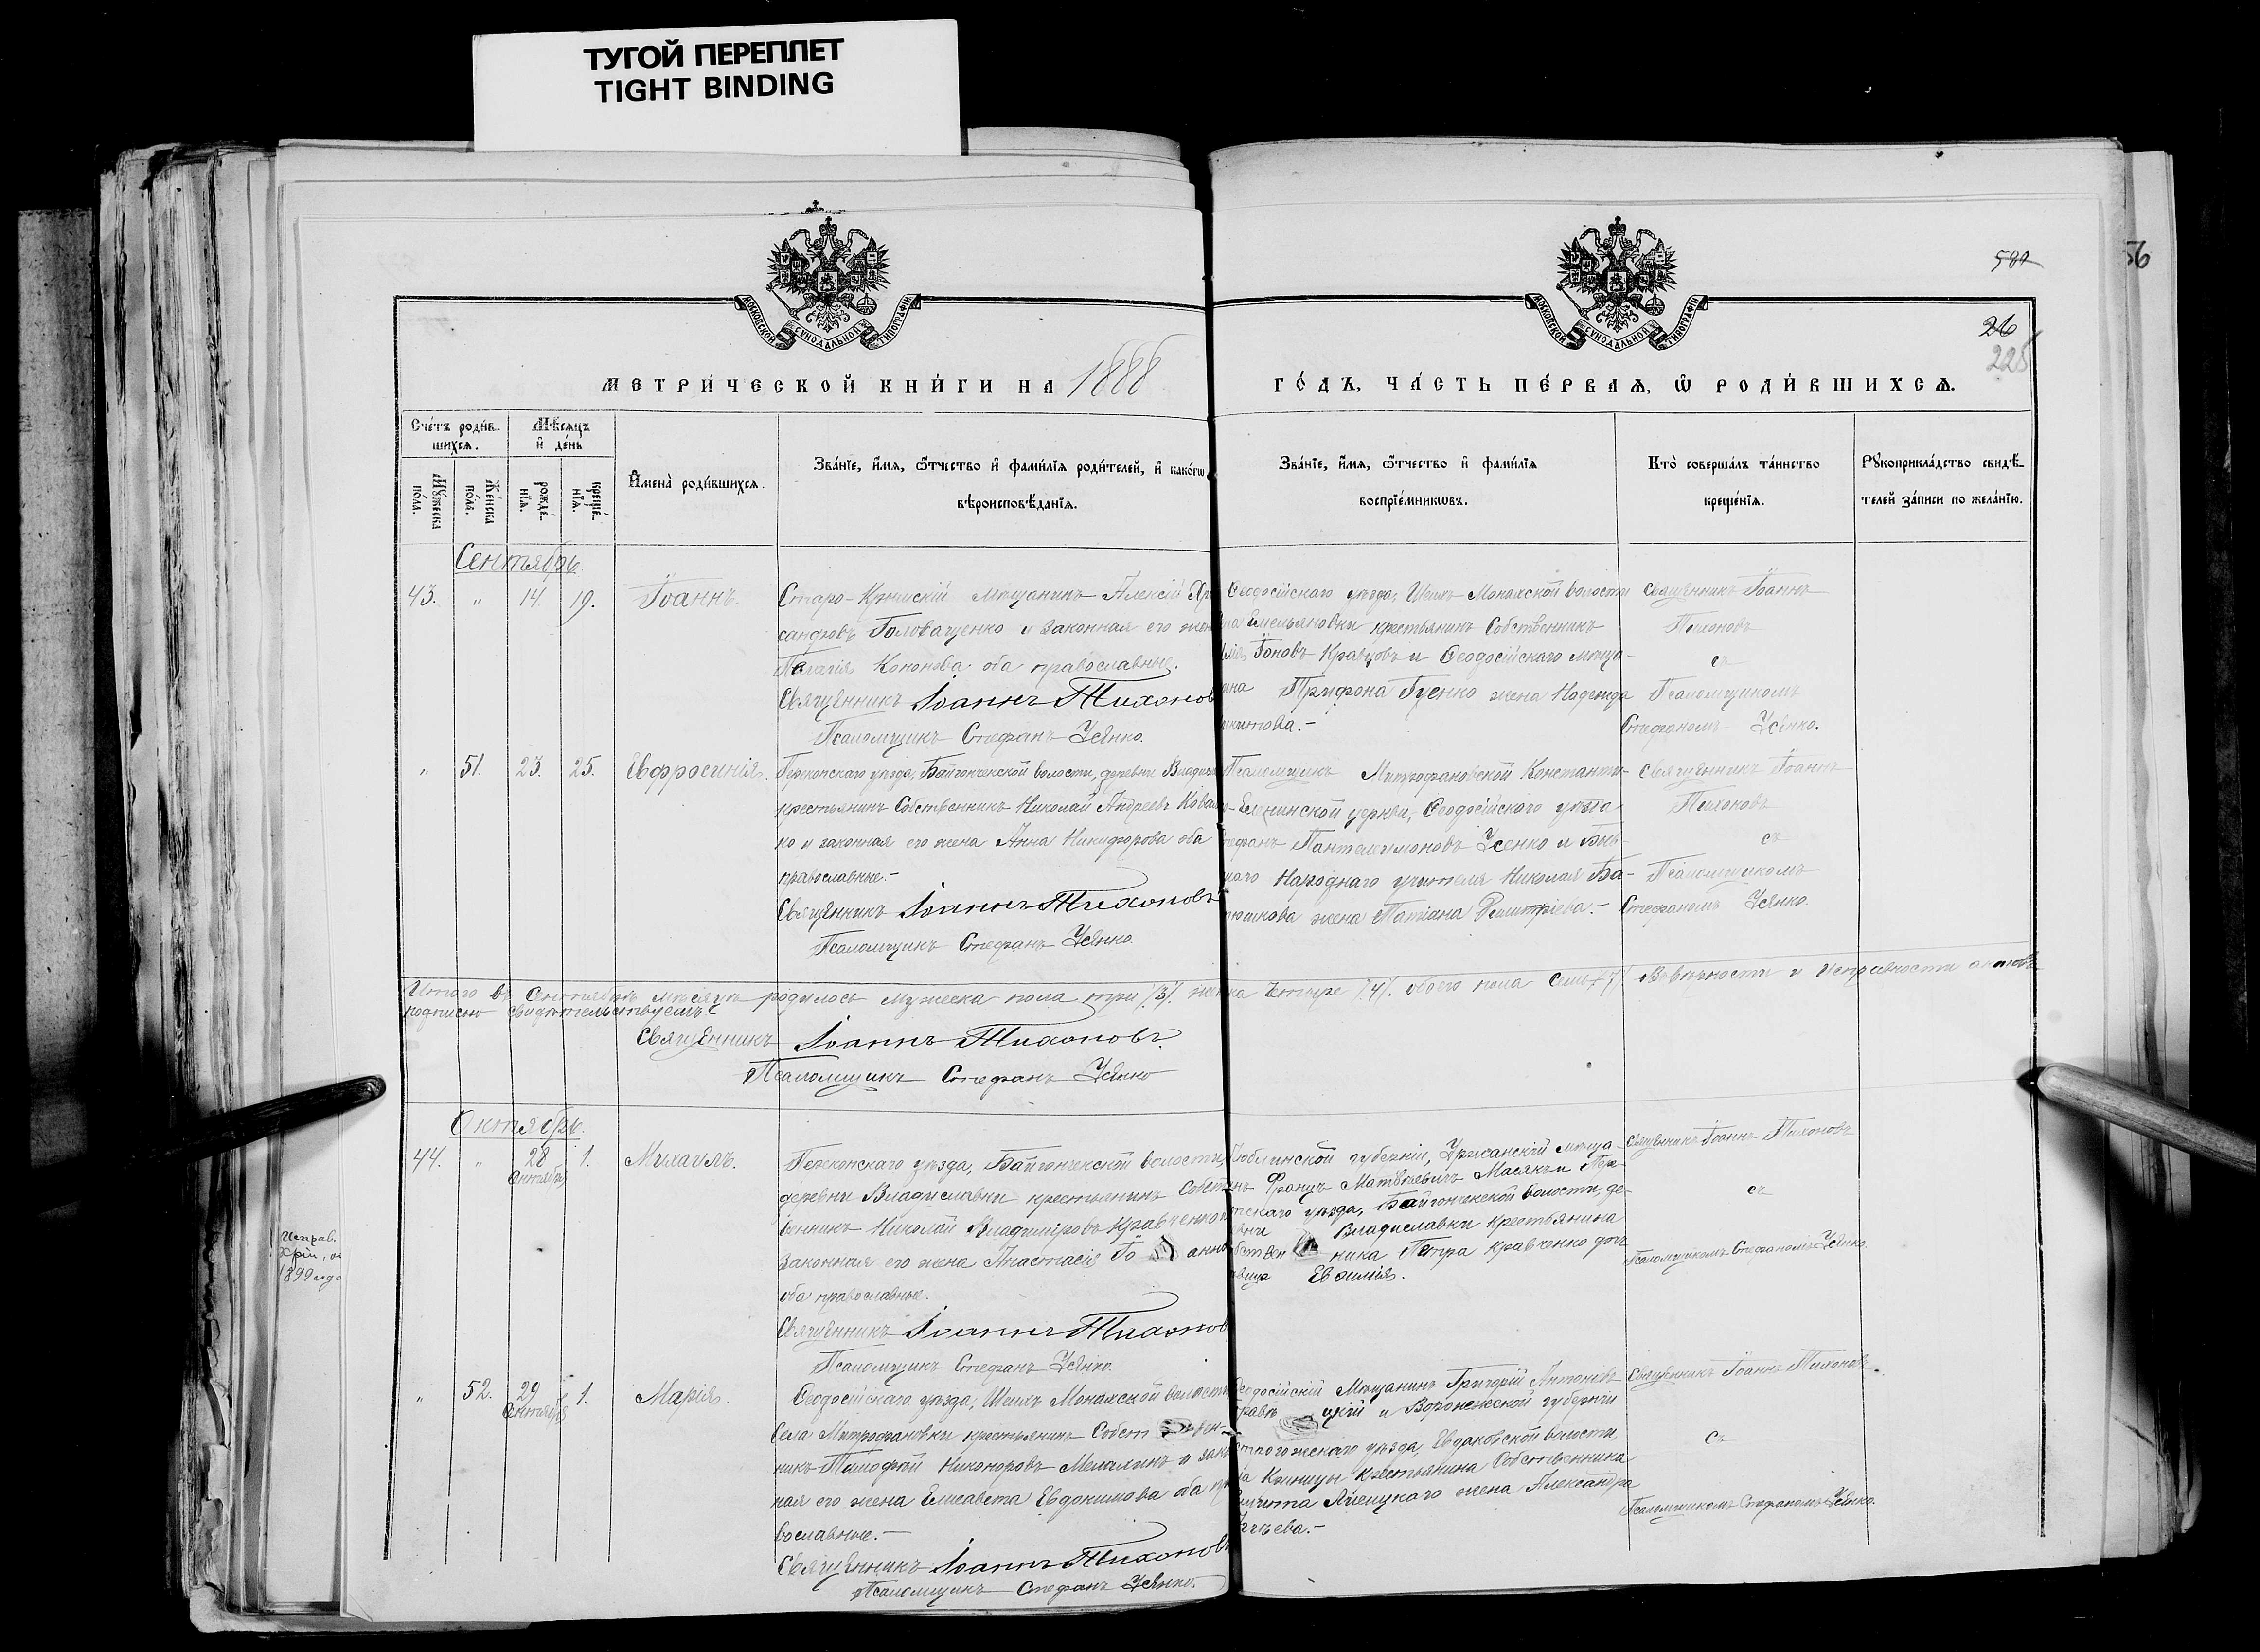 ТУГОЙ ПЕРЕПЛЕТ
TIGHT BINDING
МОСКОВСКОЙ СУНОДАЛЬНОЙ ТИПОГРАФІИ
МОСКОВСКОЙ СУНОДАЛЬНОЙ ТИПОГРАФІИ
56
26
225
МЕТРИ́ЧЕСКОЙ КНИ́ГИ НА 1888
ГО́ДЪ, ЧА́СТЬ ПЕ́РВАѦ, Ѡ РОДИ́ВШИХСѦ.
Сче́тъ роди́в-
шихсѧ.
Мѣ́сѧцъ
и҆ де́нь
Мꙋ́жеска
по́ла.
Же́нска
по́ла.
рожде́-
нїѧ.
креще́-
нїѧ.
И҆мена̀ роди́вшихсѧ.
Зва́нїе, и҆́мѧ, ѻ҆́тчество и҆ фами́лїѧ роди́телей, и҆ како́гѡ
вѣроисповѣ́данїѧ.
Зва́нїе, и҆́мѧ, ѻ҆́тчество и҆ фами́лїѧ
воспрїе́мникѡвъ.
Кто̀ соверша́лъ та́инство
креще́нїѧ.
Рꙋкоприкла́дство свидѣ́-
телей за́писи по жела́нїю.
Сентябрь.
43. " 14. 19. Іоаннъ.
Старо-Крымскій мѣщанинъ Алексій Хри
сандровъ Головащенко и законная его жен
Пелагія Кононова оба православные.
Священникъ Іоаннъ Тихонов
Псаломщикъ Стефанъ Усенко.
Ѳеодосійскаго уѣзда, Шеихъ-Монахской волости
Емельяновки крестьянинъ Собственникъ
Іоновъ Кравцовъ и Ѳеодосійскаго мѣща-
ина Трифона Гуенко жена Надежда
икитова.-
Священникъ Іоаннъ
Тихоновъ
съ
Псаломщикомъ
Стефаномъ Усенко.
" 51. 23. 25. Евфросинія.
Перекопскаго уѣзда, Байгончекской волости, деревни Владисл
крестьянинъ Собственникъ Николай Андреевъ Ковал
ко и законная его жена Анна Никифорова оба
православные.-
Священникъ Іоаннъ Тихоновъ
Псаломщикъ Стефанъ Усенко.
Псаломщикъ Митрофановской Константи-
-Еленинской церкви, Ѳеодосійскаго уѣзда
тефанъ Пантелеимоновъ Усенко и Быв-
шаго Народнаго учителя Николая Ба-
тюшкова жена Татіана Димитріева.-
Священникъ Іоаннъ
Тихоновъ
съ
Псаломщикомъ
Стефаномъ Усенко.
Итого въ Сентябрѣ мѣсяцѣ родилось мужеска пола три /3/. женска четыре /4/. обоего пола семь /7/. Вѣрности и исправности актовъ
подписью свидѣтельствуемъ:
Священникъ Іоаннъ Тихоновъ.
Псаломщикъ Стефанъ Усенко
Октябрь.
44. " 28 1. Михаилъ.
Сентября
Перекопскаго уѣзда, Байгончекской волости,
деревни Владиславки крестьянинъ Собст
венникъ Николай Владиміровъ Кравченко и
законная его жена Анастасія Іо анно
оба православные.
Священникъ Іоаннъ Тихонов
Псаломщикъ Стефанъ Усенко.
Люблинской губерніи, мѣща-
нъ Францъ Матвѣевичъ Масякъ и Пере-
пскаго уѣзда, Байгончекской волости, де-
евни Владиславки крестьянина
бствен ника Петра Кравченко доч
вица Евѳимія.
Священникъ Іоаннъ Тихоновъ
съ
Псаломщикомъ Стефаномъ Усенко.
" 52. 29 1. Марія.
Сентября
Ѳеодосійскаго уѣзда, Шеихъ Монахской волости
Села Митрофановки крестьянинъ Собст вен-
никъ Тимофей Никоноровъ и закон
ная его жена Елисавета Евдокимова оба пра
вославные.-
Священникъ Іоаннъ Тихоновъ
Псаломщикъ Стефанъ Усенко.
Ѳеодосійскій Мѣщанинъ Григорій Антоніевъ
и Воронежской губерніи
строгожскаго уѣзда, Евдаковской волости
Криницы крестьянина Собственника
жена Александра
Священникъ Іоаннъ Тихоновъ.
Съ
Псаломщикомъ Стефаномъ Усенко.
Исправ.
1899 года